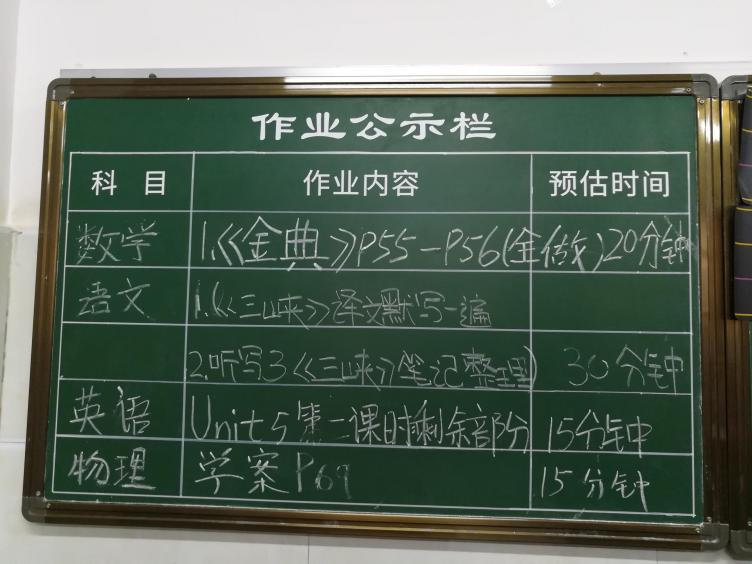 作业公示栏
科目 作业内容 预估时间
数学 1.《金典》P55-P56(全做) 20分钟
语文 1.《三峡》译文默写一遍
2.听写3《三峡》笔记整理) 30分钟
英语 Unit 5 第二课时剩余部分 15分钟
物理 学案 15分钟